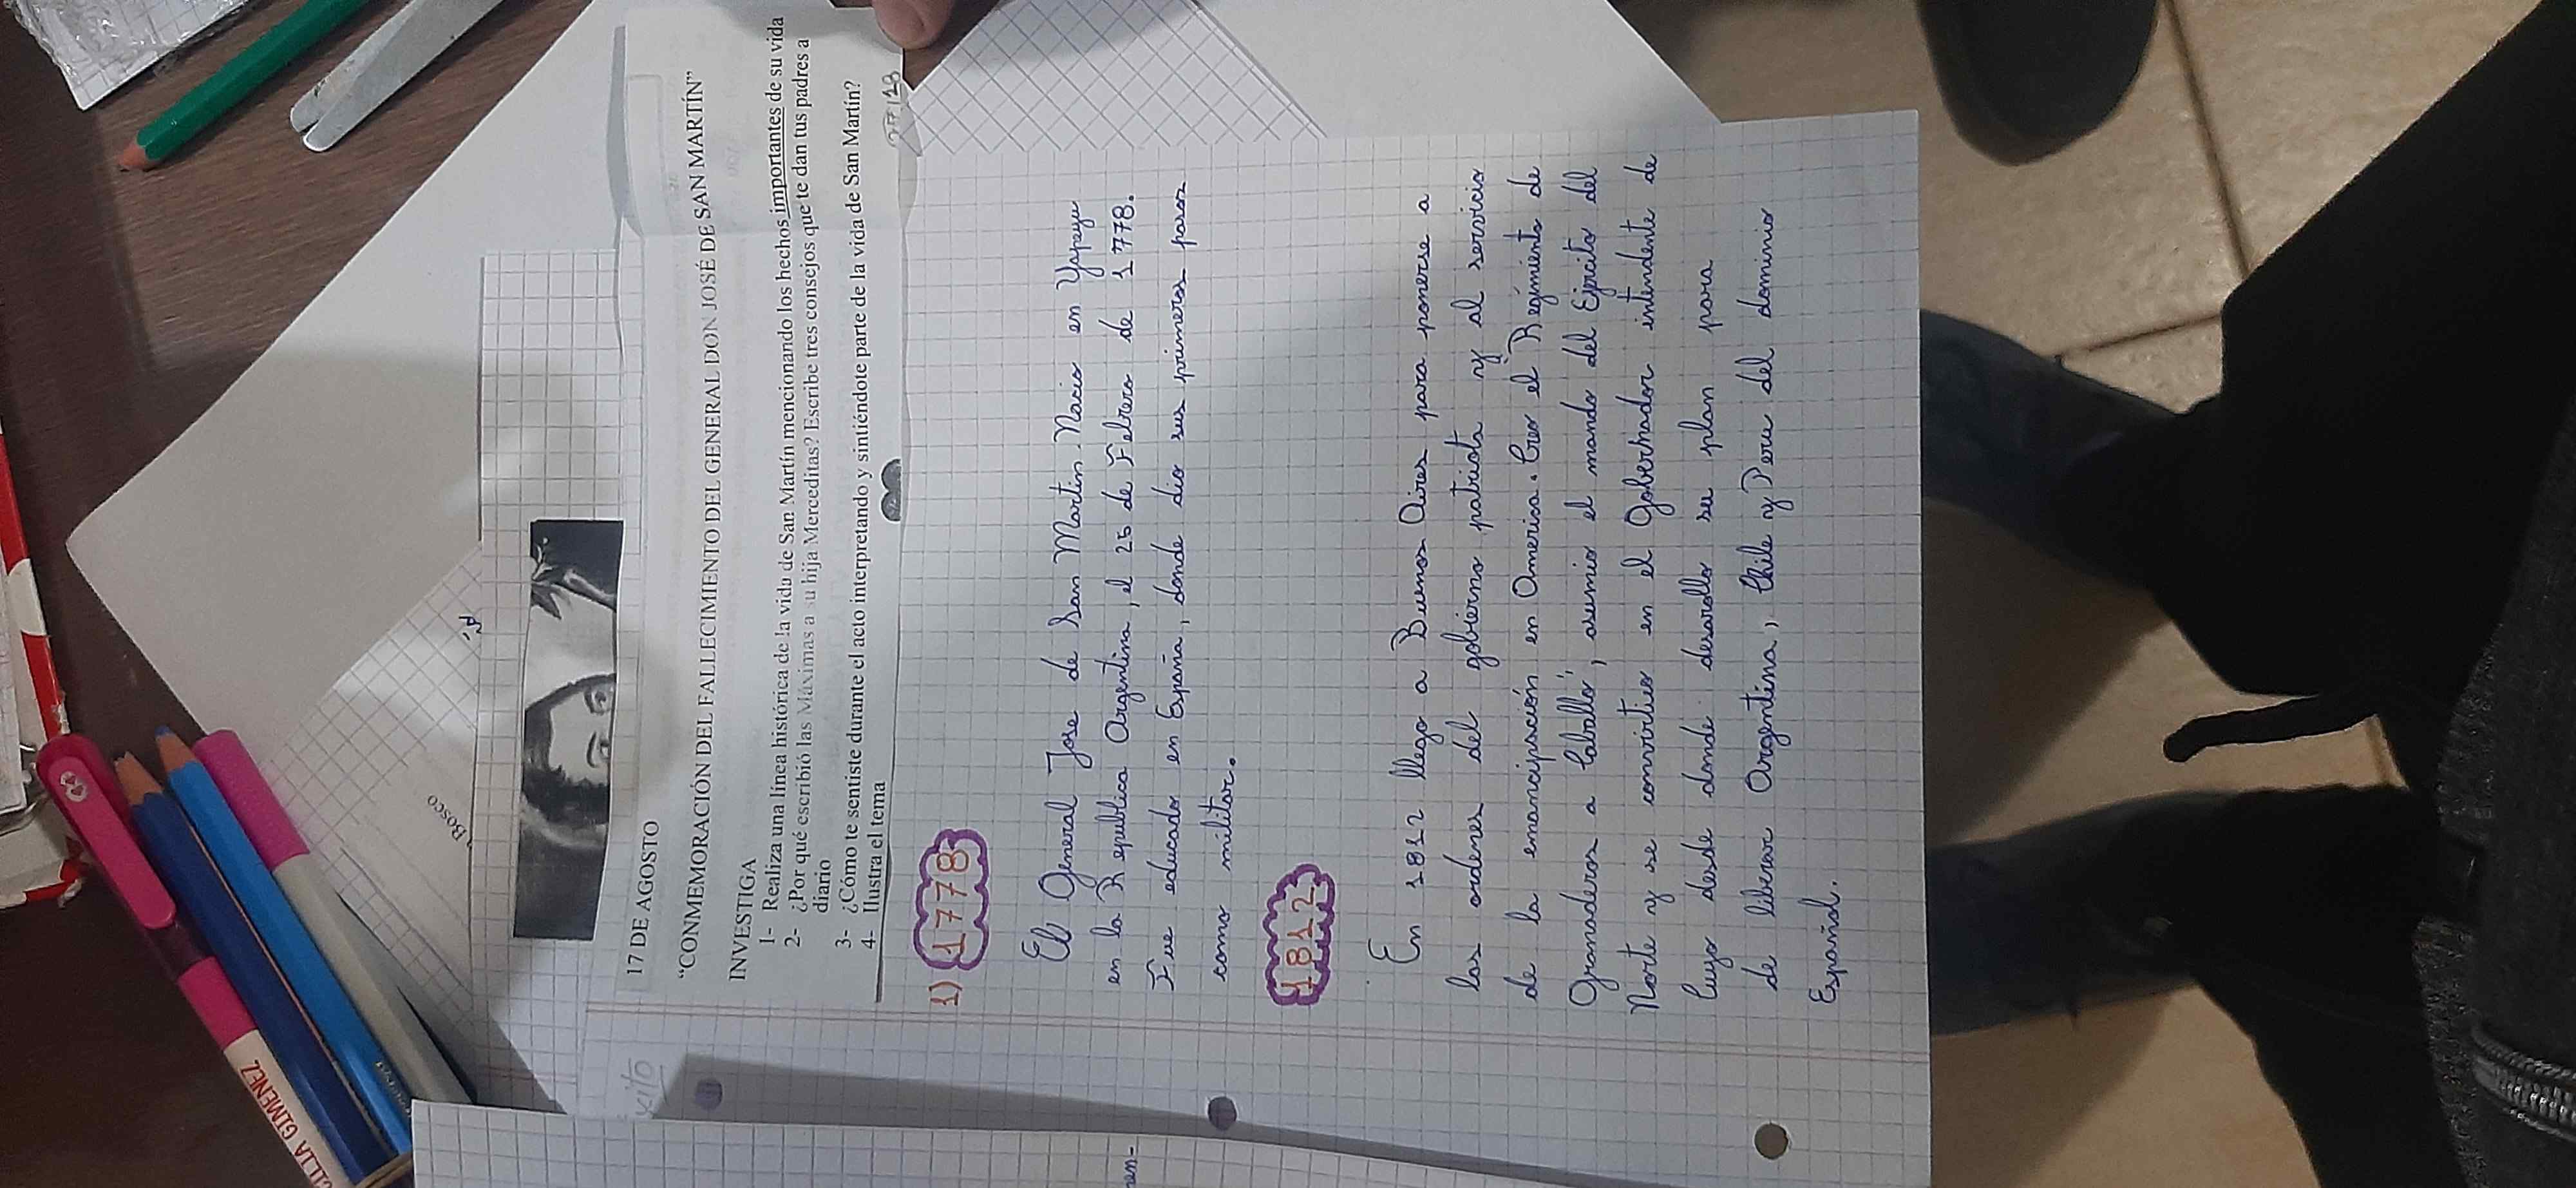 17 DE AGOSTO
“CONMEMORACIÓN DEL FALLECIMIENTO DEL GENERAL DON JOSÉ DE SAN MARTÍN”
INVESTIGA
1- Realiza una línea histórica de la vida de San Martín mencionando los hechos importantes de su vida
2- ¿Por qué escribió las Máximas a su hija Merceditas? Escribe tres consejos que te dan tus padres a
diario
3- ¿Cómo te sentiste durante el acto interpretando y sintiéndote parte de la vida de San Martín?
4- Ilustra el tema
1) 1778
El General Jose de San Martin Nacio en Yapeyu
en la Republica Argentina, el 25 de Febrero de 1778.
Fue educado en España, donde dio sus primeros pasos
como militar.
1812
En 1812 llego a Buenos Aires para ponerse a
las ordenes del gobierno patriota y al servicio
de la emancipación en America. Creo el Regimiento de
Granaderos a Caballo, asumio el mando del Ejercito del
Norte y se convirtio en el Gobernador intendente de
Cuyo desde donde desarollo su plan para
de liberar Argentina, Chile y Peru del dominio
Español.
Bosco
CILIA GIMENEZ